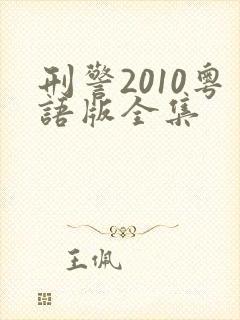 刑警2010粤
語版全集
王佩